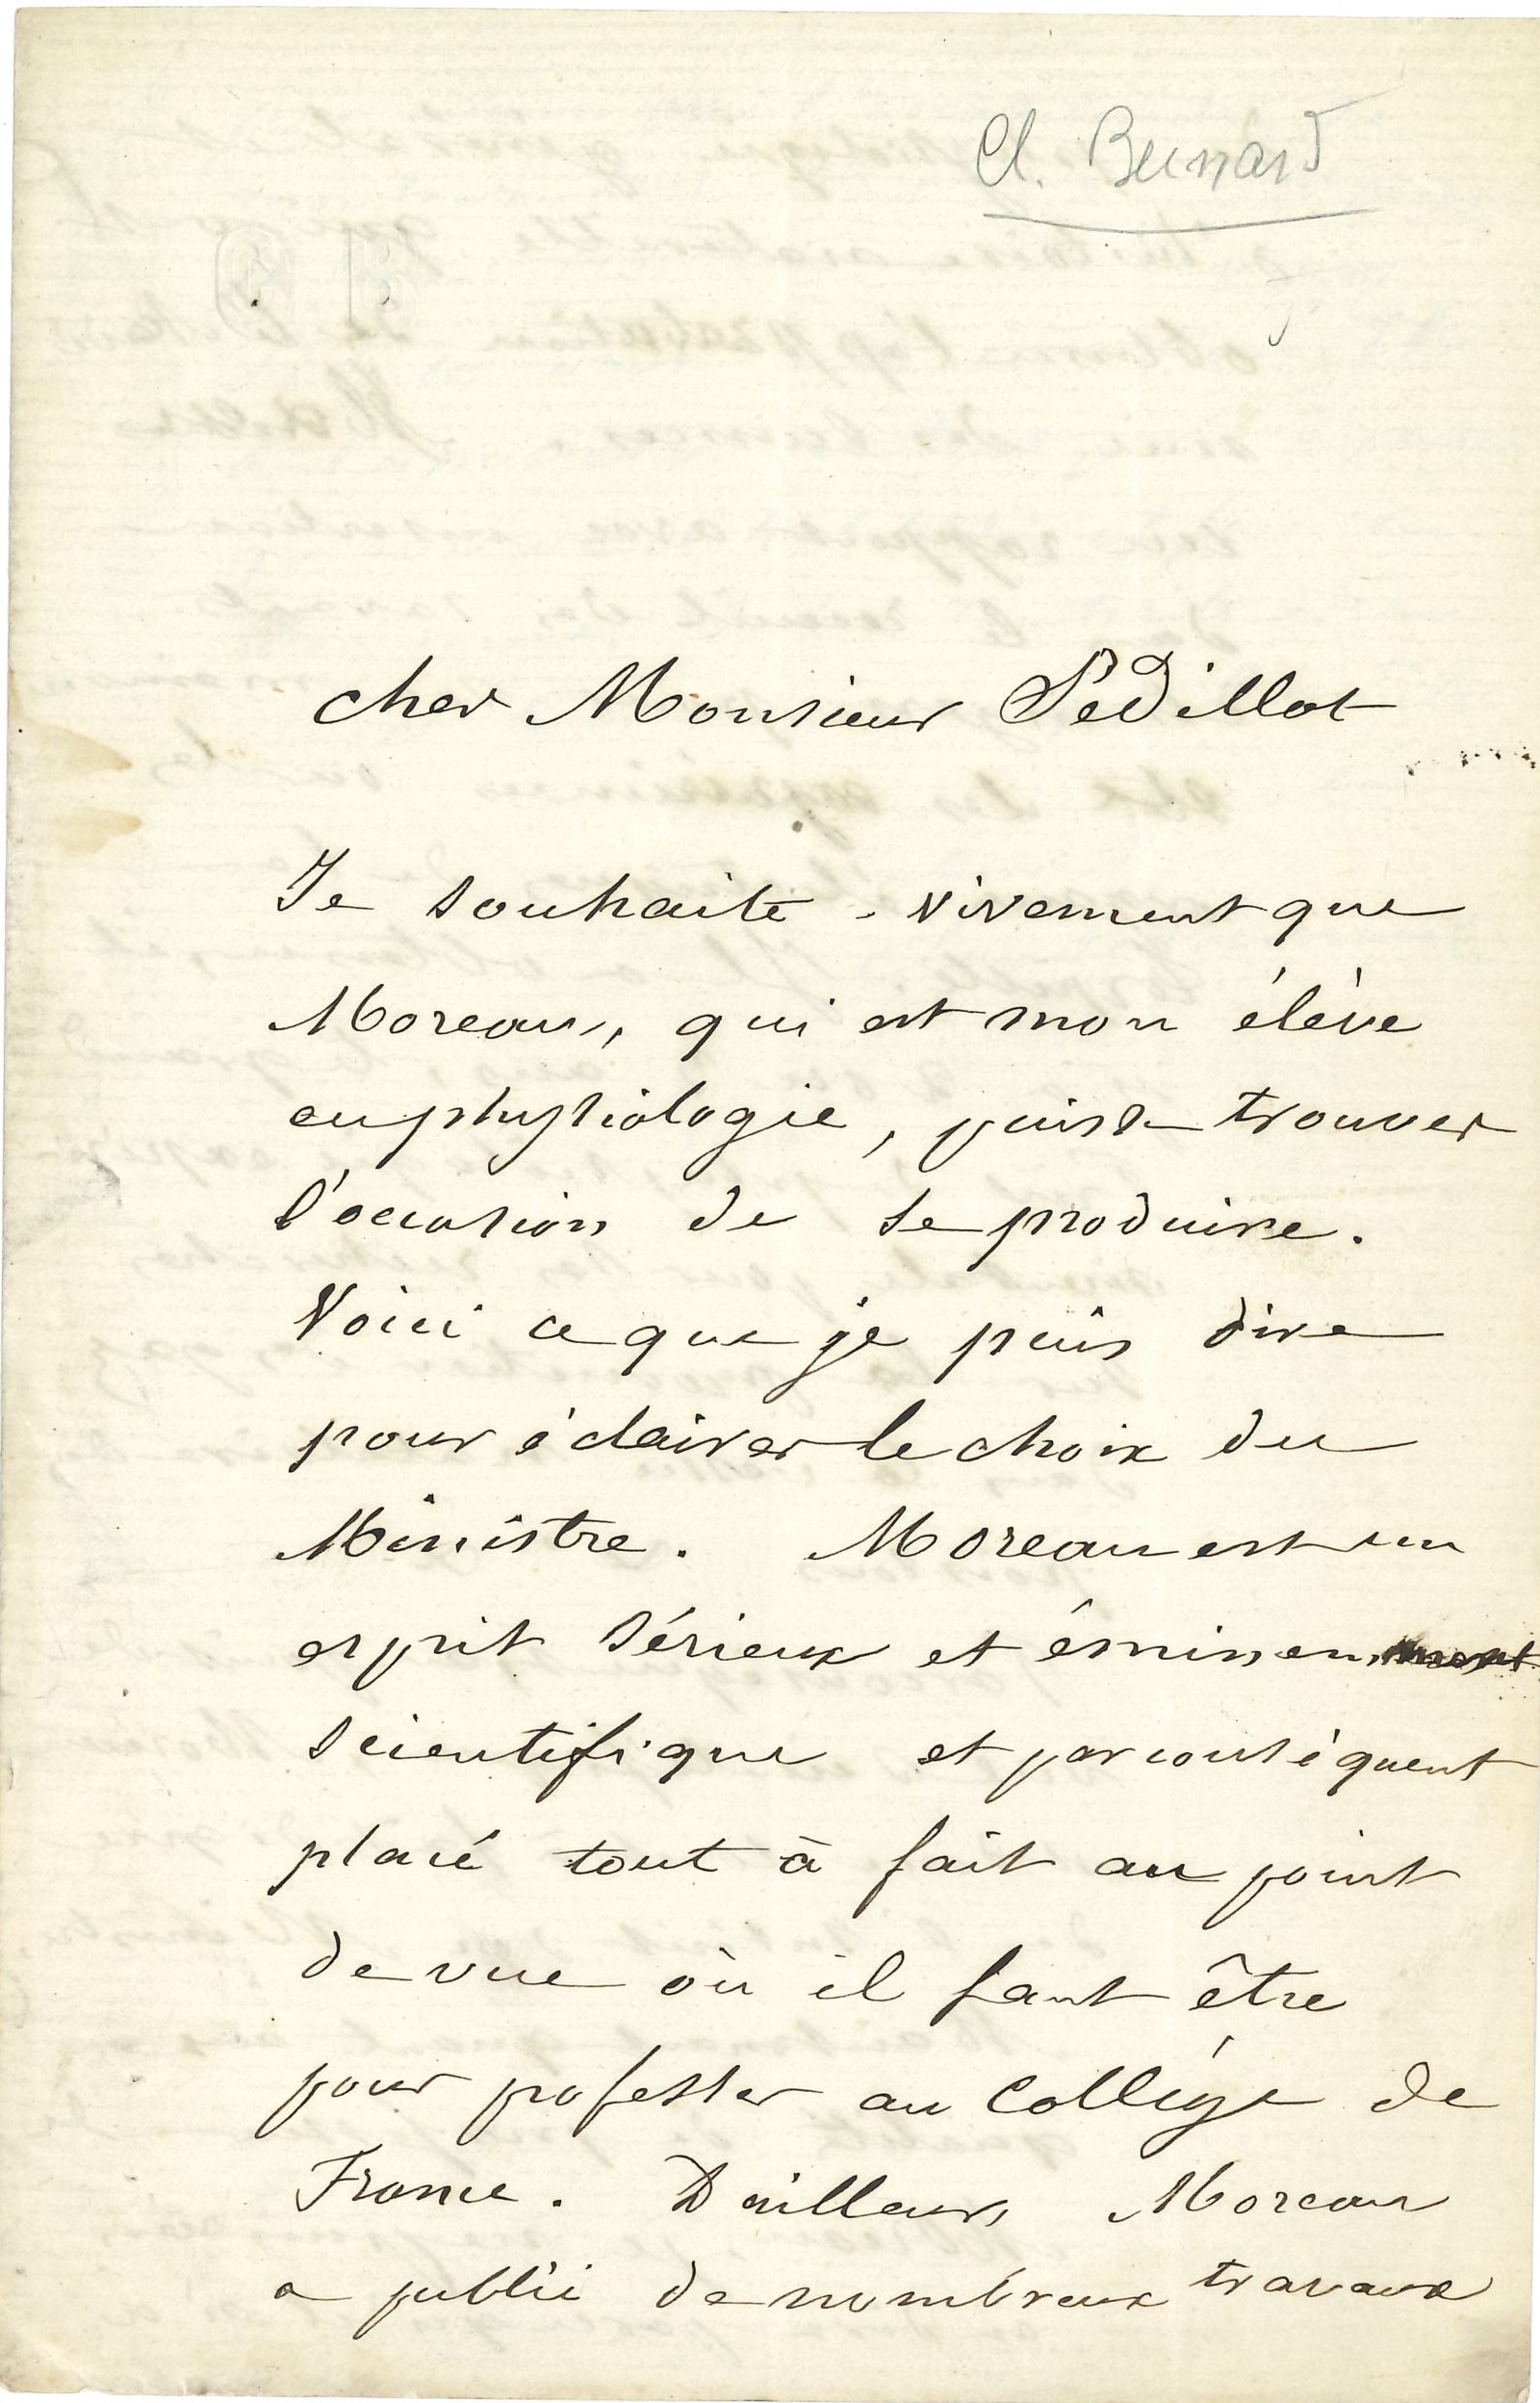 Cl. Bernard
cher Monsieur Sedillot
Je souhaite vivement que
Moreau, qui est mon élève
en physiologie, puisse trouver
l'occasion de se produire.
Voici ce que je puis dire
pour éclairer le choix du
Ministre. Moreau est un
esprit sérieux et éminemment
scientifique et par conséquent
placé tout à fait au point
de vue où il faut être
pour professer au Collége de
France. D'ailleurs, Moreau
a publié de nombreux travaux